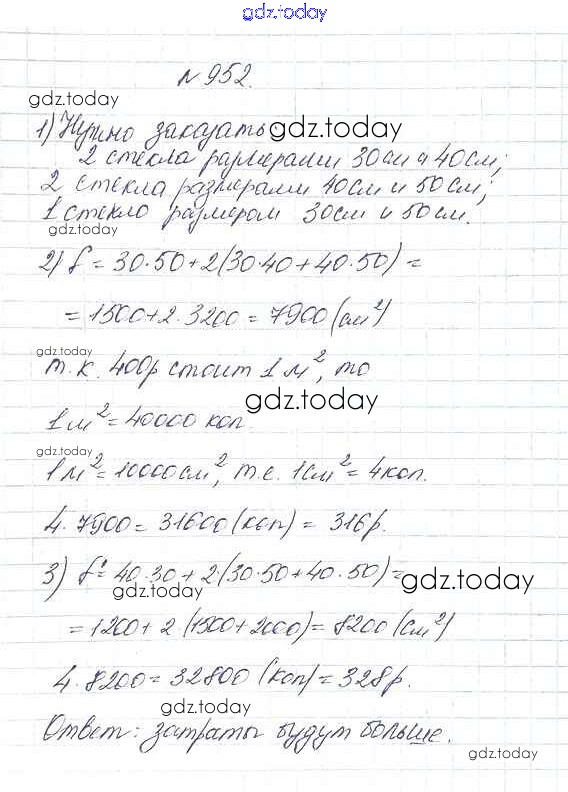 gdz.today
№952.
gdz.today
1) Нужно заказать: gdz.today
2 стекла размерами 30см и 40см;
2 стекла размерами 40см и 50см;
1 стекло размером 30см и 50см.
gdz.today
2) S = 30·50+2(30·40+40·50) =
= 1500+2·3200 = 7900 (см²)
gdz.today
т.к. 400р стоит 1м², то
1м² = 40000 коп gdz.today
gdz.today
1м² = 10000см², т.е. 1см² = 4коп.
4·7900 = 31600 (коп) = 316р.
3) S = 40·30+2·(30·50+40·50) = gdz.today
gdz.today
= 1200+2·(1500+2000) = 8200 (см²)
4·8200 = 32800 (коп) = 328р.
gdz.today
Ответ: затраты будут больше.
gdz.today